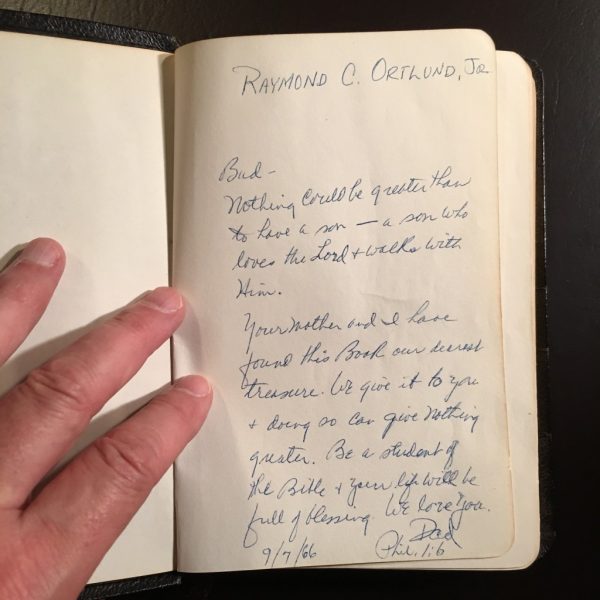 RAYMOND C. ORTLUND, JR.
Bud-
Nothing could be greater than
to have a son — a son who
loves the Lord + walks with
Him.
Your mother and I have
found this Book our dearest
treasure. We give it to you
+ doing so can give nothing
greater. Be a student of
the Bible + your life will be
full of blessing. We love you.
Dad
9/7/66 Phil. 1:6